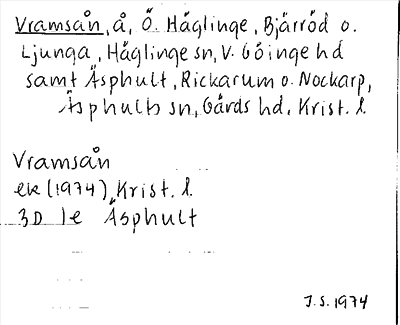 Vramsån, å, Ö. Häglinge, Bjärröd o.
Ljunga, Häglinge sn, V. Göinge hd
samt Äsphult, Rickarum o. Nockarp,
Äsphults sn, Gärds hd, Krist. l.
Vramsån
ek (1974), Krist. l.
3D 1e Äsphult
I.S. 1974